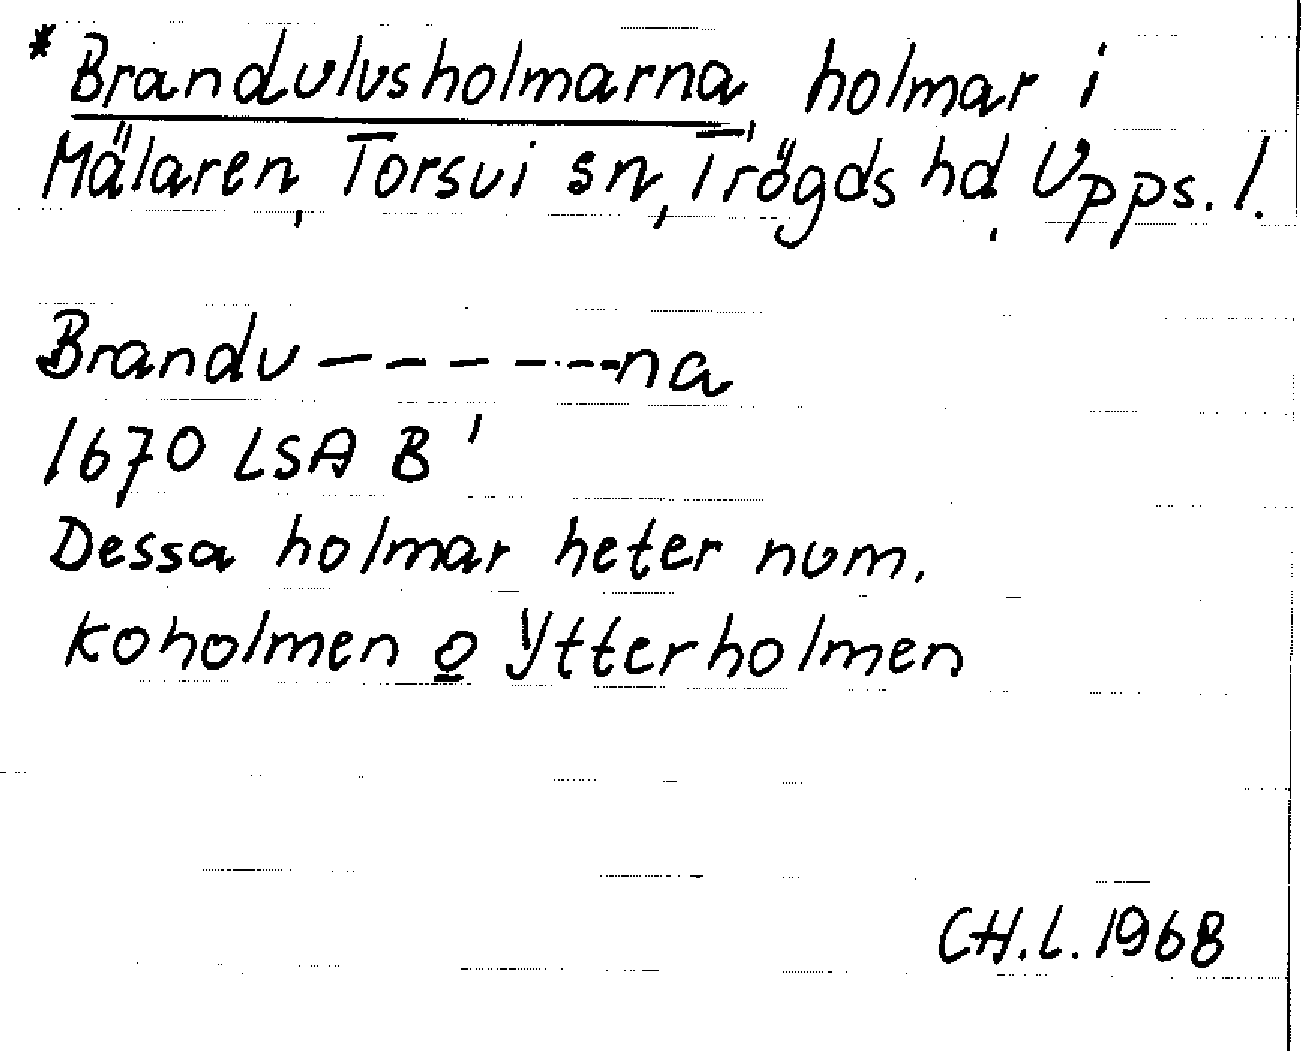 * Brandulvsholmarna, holmar i
Mälaren, Torsvi sn, Trögds hd, Upps. l.
Brandu------na
1670 LSA B'
Dessa holmar heter num.
Koholmen o Ytterholmen
CH.L. 1968